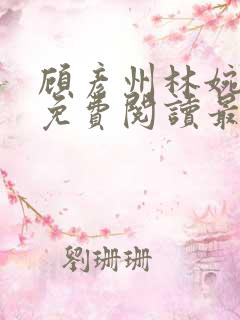 顾彦州林婉
免費閱讀最
劉珊珊